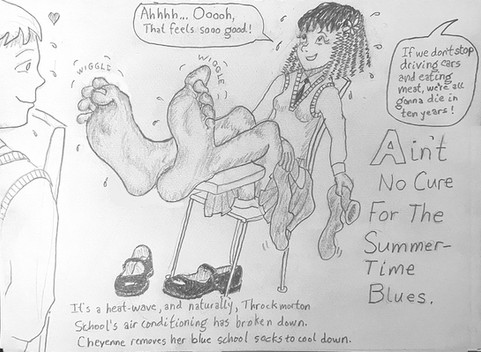 Ahhhh... Ooooh,
That feels sooo good!
WIGGLE
WIGGLE
If we don't stop
driving cars
and eating
meat, we're all
gonna die in
ten years!
Ain't
No Cure
For The
Summer-
Time
Blues.
It's a heat-wave, and naturally, Throckmorton
School's air conditioning has broken down.
Cheyenne removes her blue school socks to cool down.